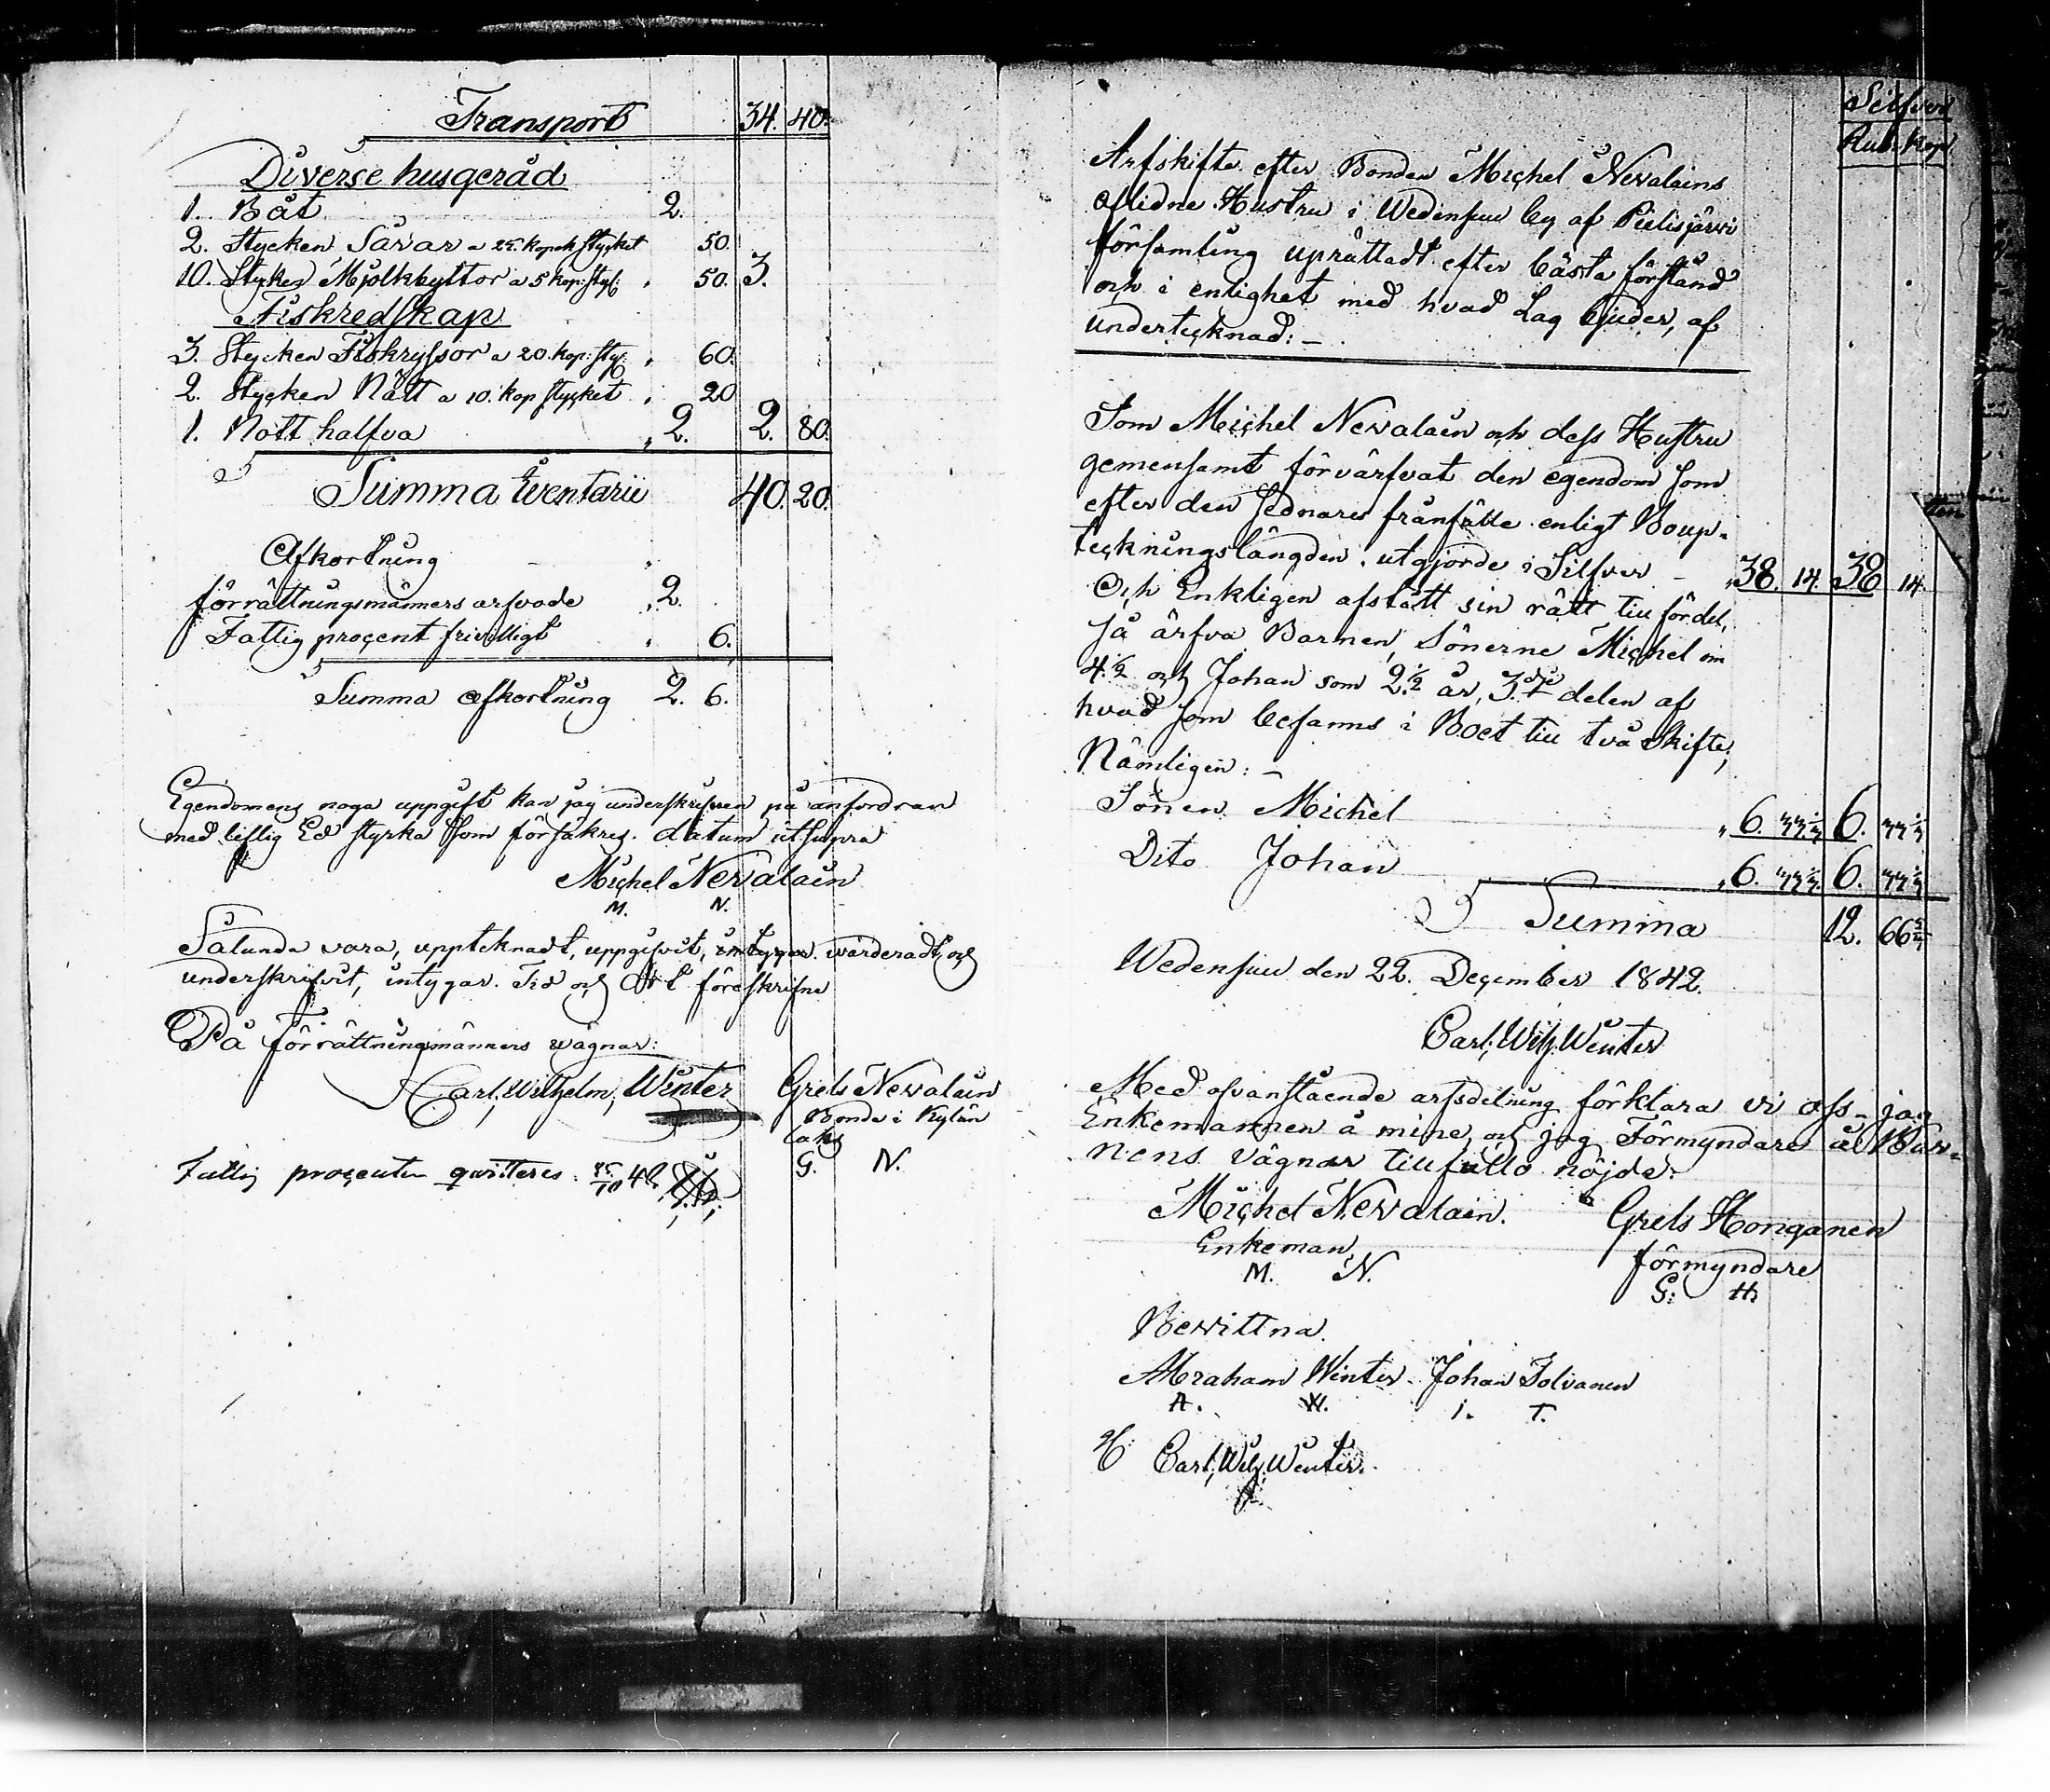 Transport 34. 40.
Diverse husgeråd
1. Båt 2.
2. Stycken Såvar a 25. kopek stycket 50.
10. Stycken Mjölkbyttor a 5 kop: styc: " 50. 3.
Fiskredskap
3. Stycken Fiskryssor a 20. kop: styc: " 60.
2. Stycken Nätt a 10. kop stycket " 20
1. Nott halfva " 2. 2. 80.
Summa Iventarii 40. 20.
Afkortning
förrättningsmänners arfvode " 2.
Fattig procent frivilligt " 6.
Summa afkortning 2. 6.
Egendomens noga uppgift kan jag underskrifven på anfordran
med liflig Ed styrka som försäkras. datum ut supra
Michel Nevalain
M. N.
Sålunda vara, uppteknadt, uppgifvit, värderadt, och
underskrifvit, intygar. Tid och Ort föreskrifne
På förrättningsmänners vägnar:
Carl, Wilhelm, Winter Grels Nevalain
Bonde i Kylän
laks
G. N.
Fattig procenten qvitteras 48
Silfver
Rub. Kop
Arfskifte efter Bonden Michel Nevalains
aflidne Hustru i Wedensuu by af Pielisjärvi
församling uprättadt efter bästa förstånd
och i enlighet med hvad Lag bjuder, af
undertecknad: –
Som Michel Nevalain och dess Hustru
gemensamt förvärfvat den egendom som
efter den sednares frånfälle enligt Boup-
teckningslängden utgjorde i Silfver – " 38. 14. 38 14.
Och Enkligen afstått sin rätt till fördel,
så ärfva Barnen, Sönerne Michel om
4.½ och Johan som 2.½ år, 3.dje delen af
hvad som befanns i Boet till två skifte,
Nämligen: –
Sonen Michel " 6. 33⅓ 6. 33⅓
Dito Johan " 6. 33⅓ 6. 33⅓
Summa 12. 66⅔
Wedensuu den 22. December 1842.
Carl, Wilh. Winter
Med ofvanstående arfsdelning förklara vi oss – jag
Enkemannen å mine, och jag Förmyndare å Bar-
nens vägnar tillfullo nöjde.
Michel Nevalain. Grels Honganen
Enkeman förmyndare
M. N. G: H:
Bevittna.
Abraham Winter. Johan Tolvanen
A. W. J. T.
Carl, Wilh, Winter.